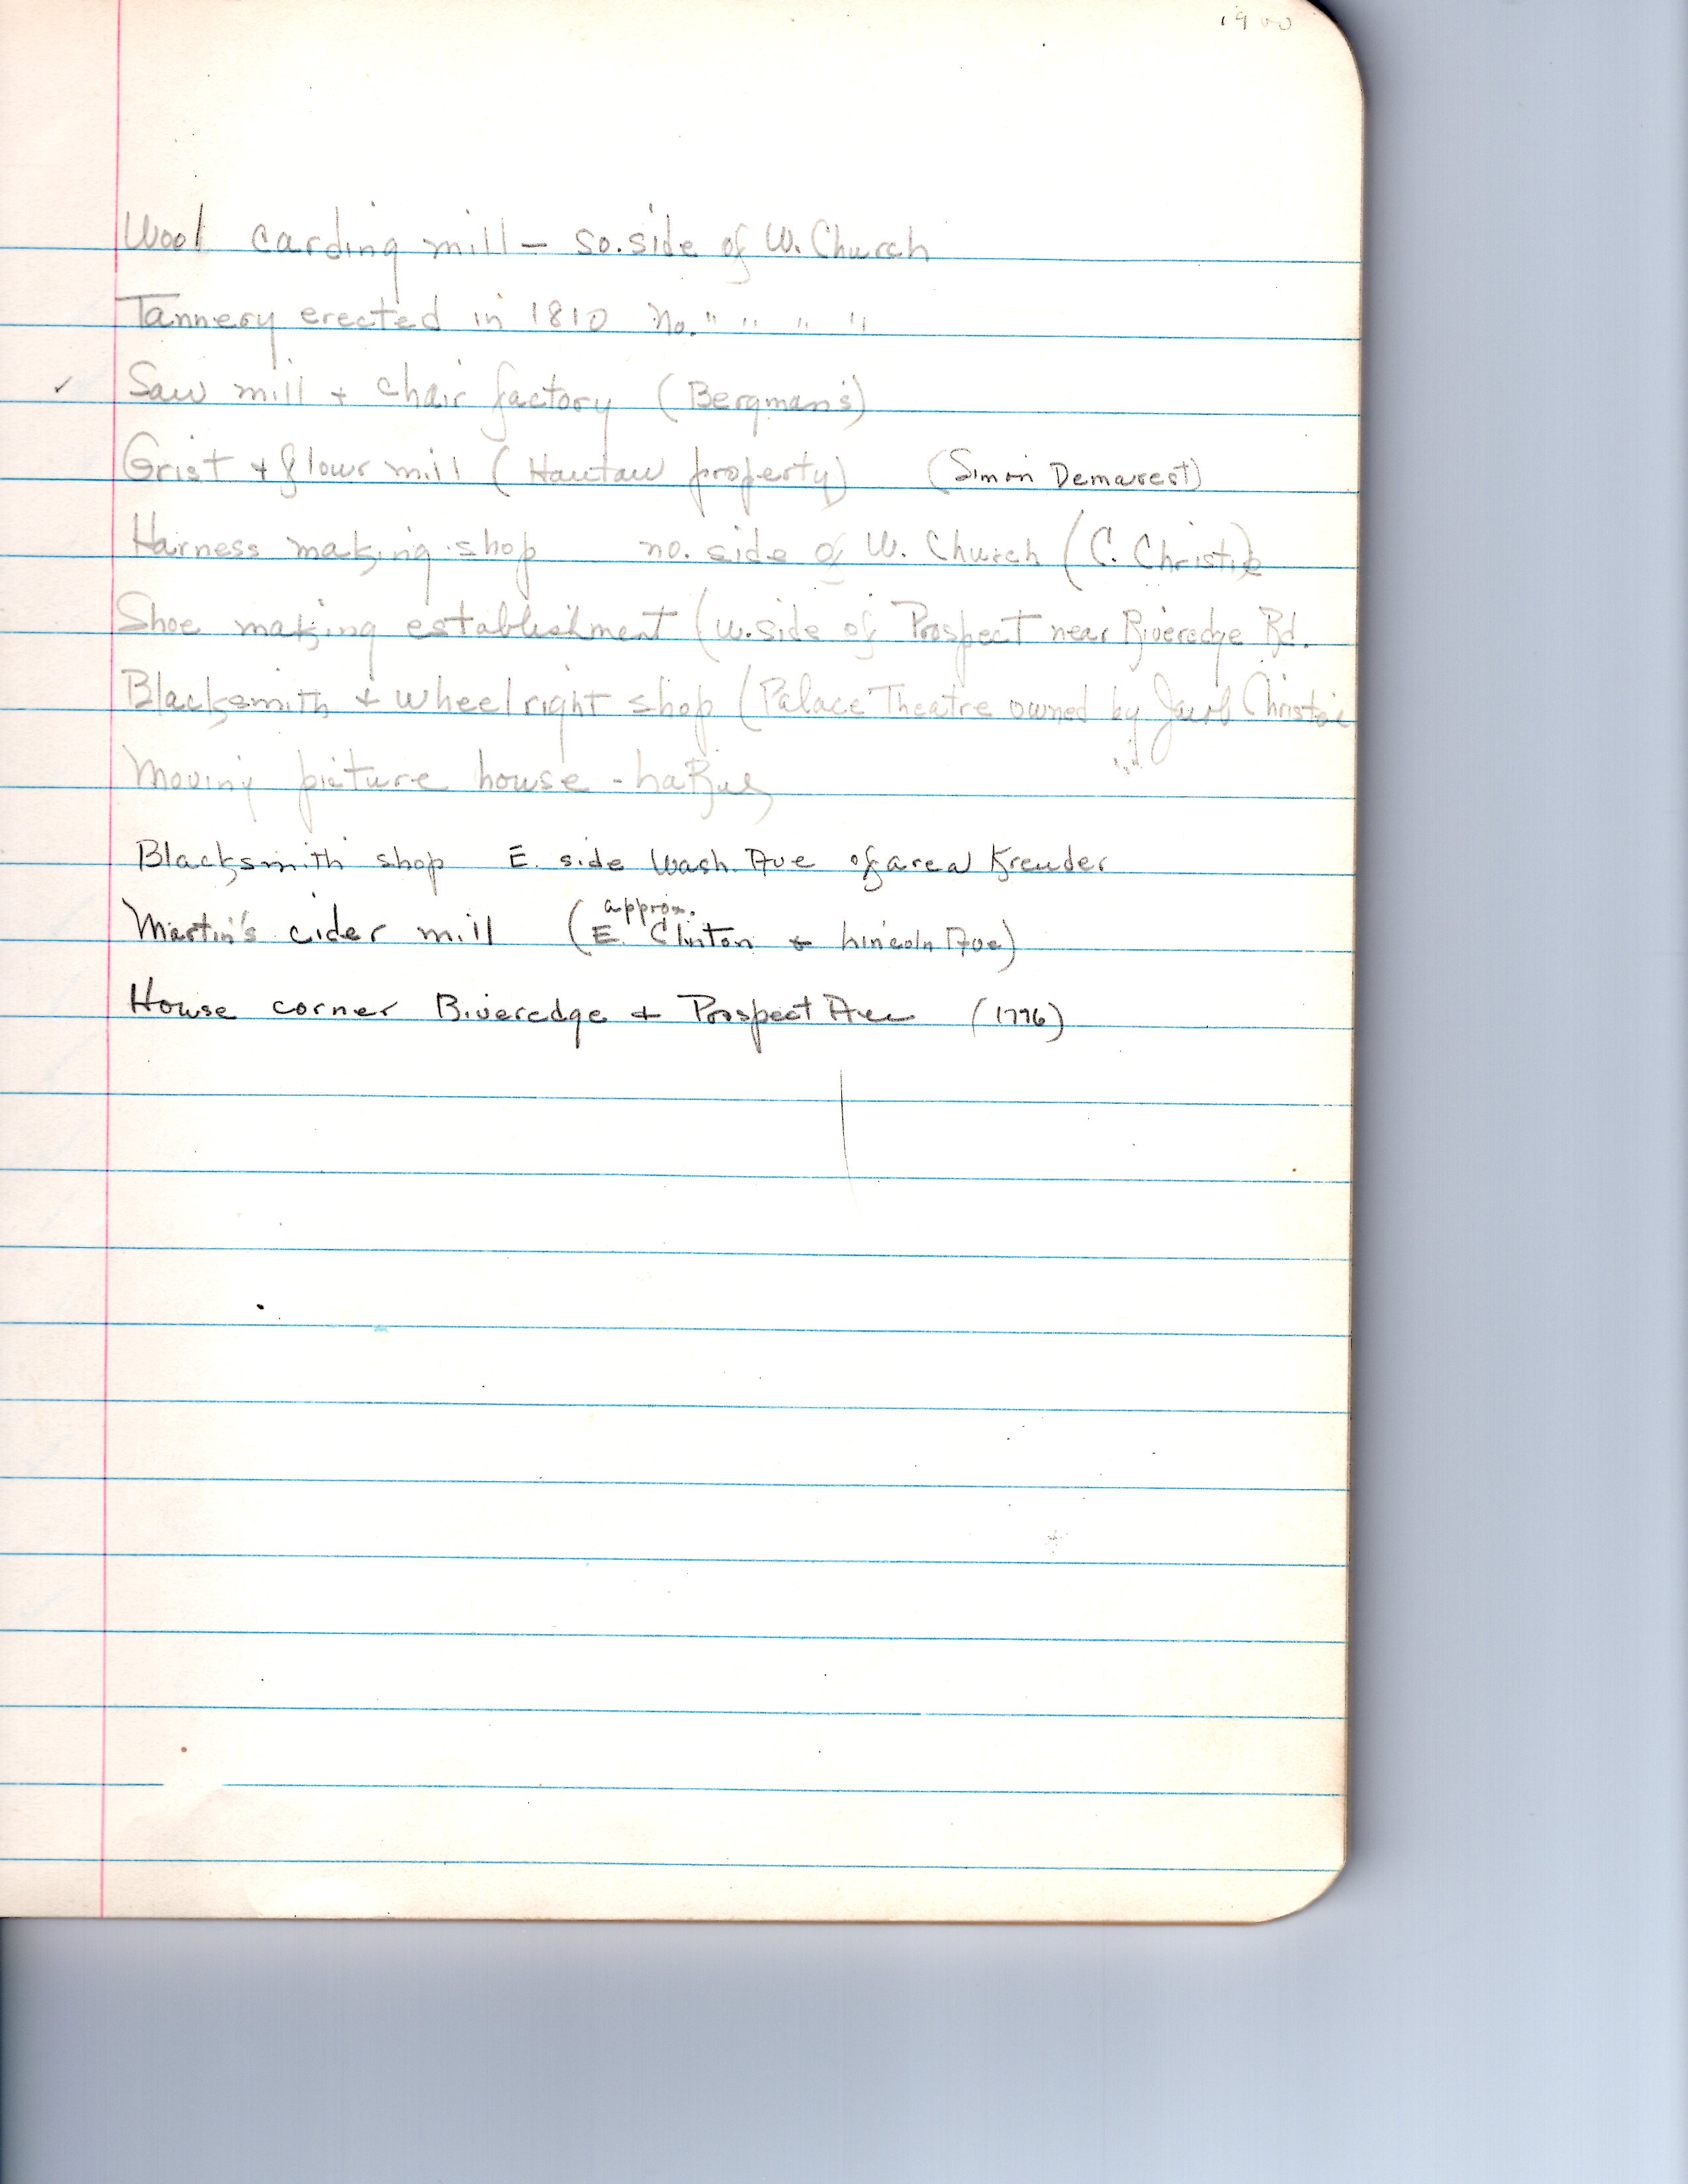 1900
Wool carding mill – so. side of W. Church
Tannery erected in 1810 no. " " " "
✓ Saw mill + chair factory (Bergman's)
Grist + flour mill (Hautau property) (Simon Demarest)
Harness making shop no. side of W. Church (C. Christie)
Shoe making establishment (w. side of Prospect near Riveredge Rd.
Blacksmith + wheelright shop (Palace Theatre owned by Christie
Moving picture house -
Blacksmith shop E. side Wash. Ave of area Kreuder
approx.
Martin's cider mill (E. Clinton + Lincoln Ave)
House corner Riveredge + Prospect Ave (1776)